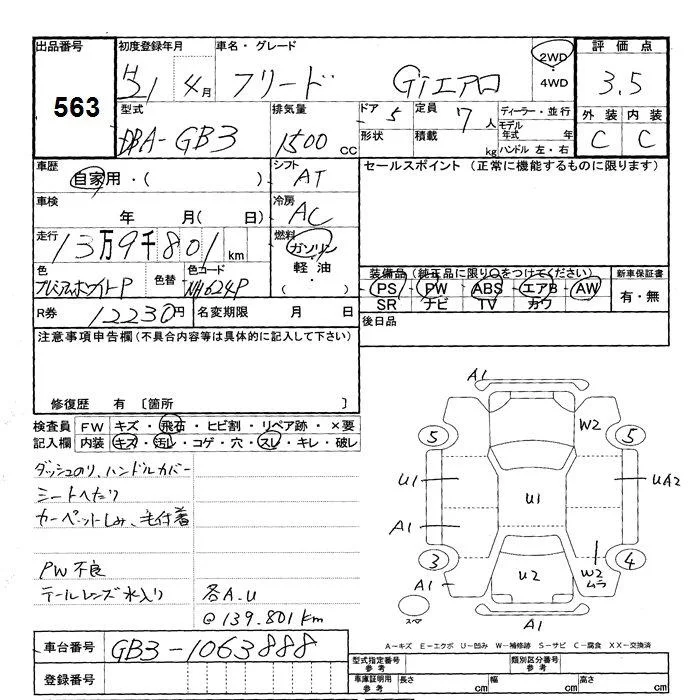 出品番号 初度登録年月 車名・グレード 2WD 評価点
563 H21 4月 フリード Giエアロ ・4WD 3.5
型式 排気量 ドア 5 定員 7人 ディーラー・並行 外装 内装
DBA-GB3 1500cc 形状 積載 kg モデル年式 年 C C
ハンドル 左・右
車歴 シフト セールスポイント (正常に機能するものに限ります)
自家用・( ) AT
車検 冷房
年 月( 日) AC
走行 13万9千801km 燃料 ガソリン
軽油
・( )
色 色替 色コード 装備品(純正品に限り○をつけてください) 新車保証書
プレミアムホワイトP NH624P PS PW ABS エアB AW 有・無
SR ナビ TV カワ
R券 12230円 名変期限 月 日 後日品
注意事項申告欄(不具合内容等は具体的に記入して下さい)
修復歴 有 〔箇所 〕
検査員 FW キズ・飛石・ヒビ割・リペア跡・×要
記入欄 内装 キズ・汚レ・コゲ・穴・スレ・キレ・破レ
ダッシュのり、ハンドルカバー
シートへたり
カーペットしみ、毛付着
PW不良
テールレンズ水入り 各A.U
@139.801km
A1
W2
5 5
U1 U1 UA2
A1
3 4
A1 U2 W2
ムラ
スペア A1
A-キズ E-エクボ U-凹み W-補修跡 S-サビ C-腐食 XX-交換済
車台番号 GB3-1063888
登録番号
型式指定番号 参考 類別区分番号 参考
車庫証明用 参考 長さ cm 幅 cm 高さ cm